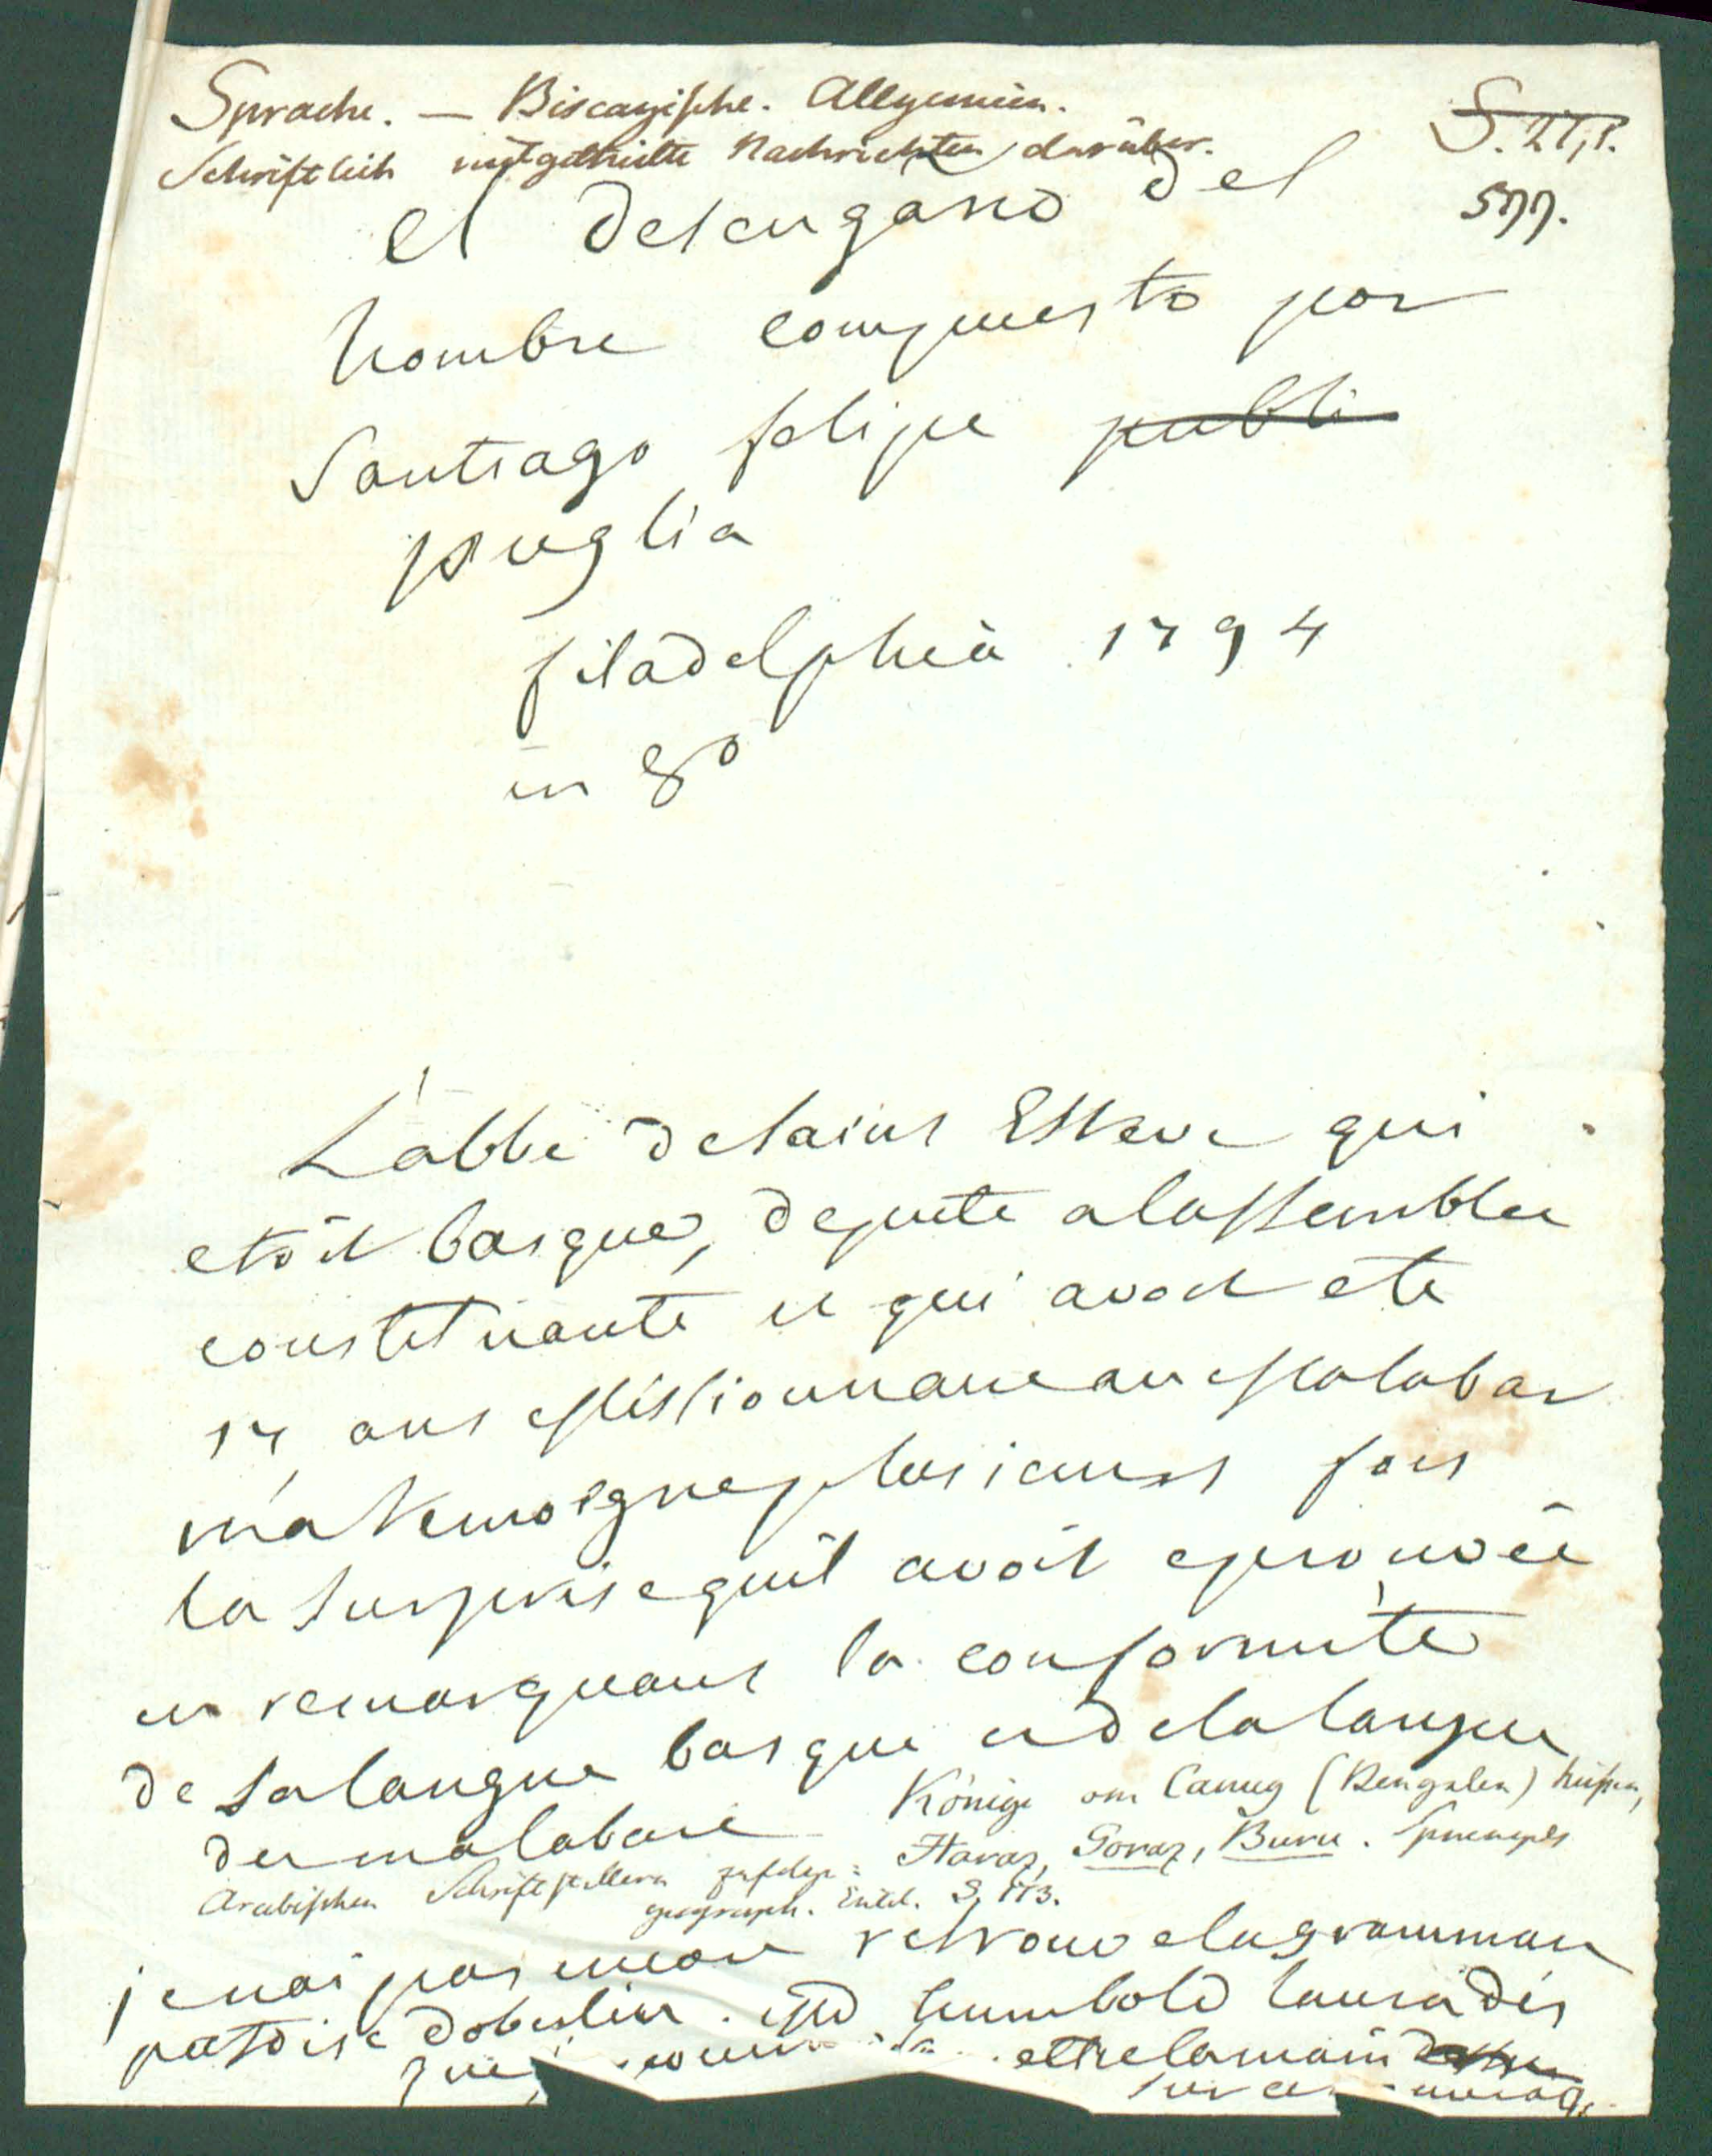 Sprache. — Biscayische. Allgemein.
Schriftlich mitgetheilte Nachrichten darüber.
577.
el desengaño del
hombre compuesto por
Santiago felipe publi
puglia
filadelphia 1794
in 8º
L'abbé de saint Esteve qui
etoit basque, deputé a lassemblee
constituante et qui avoit ete
17 ans Missionnaire au Malabar
m'a temoigné plusieurs fois
la surprise quil avoit eprouvée
en remarquant la conformité
de sa langue basque et de la langue
du malabare
Könige von (Bengalen) hießen,
Arabischen Schriftstellern zufolge: Haraz, Goraz, Buru. Sprengels
geograph. Entd. S. 113.
je nai pas encore retrouvé la grammaire
patoise doberlin. Mr humbold laura dès
que mettre la main
sur cet ouvrage